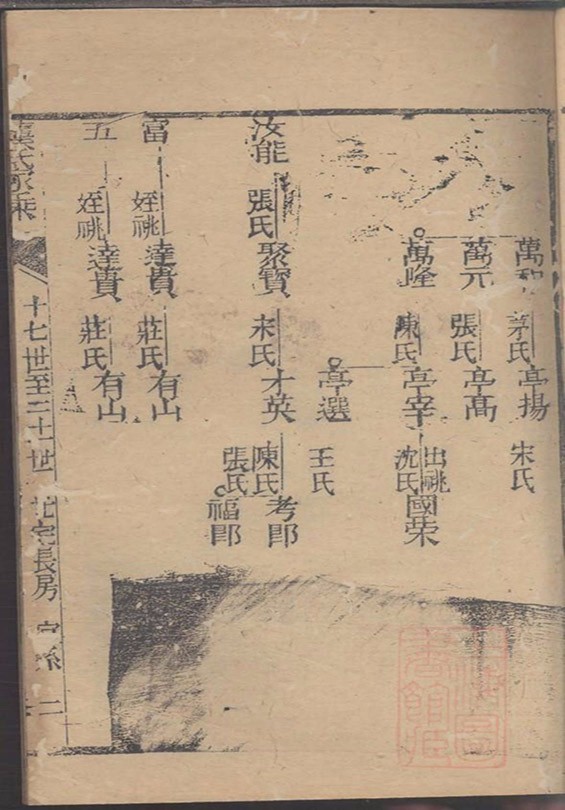 萬和
茅氏
亭揚
宋氏
萬元
張氏
亭高
萬隆
陳氏
亭宰
出祧
沈氏
國荣
亭選
王氏
汝能
張氏
聚寶
宋氏
才英
陳氏
考郎
張氏
福郎
富
姪祧
達貴
莊氏
有山
五
姪祧
達貴
莊氏
有山
氏家乘
十七世至二十一世
北宅長房
二